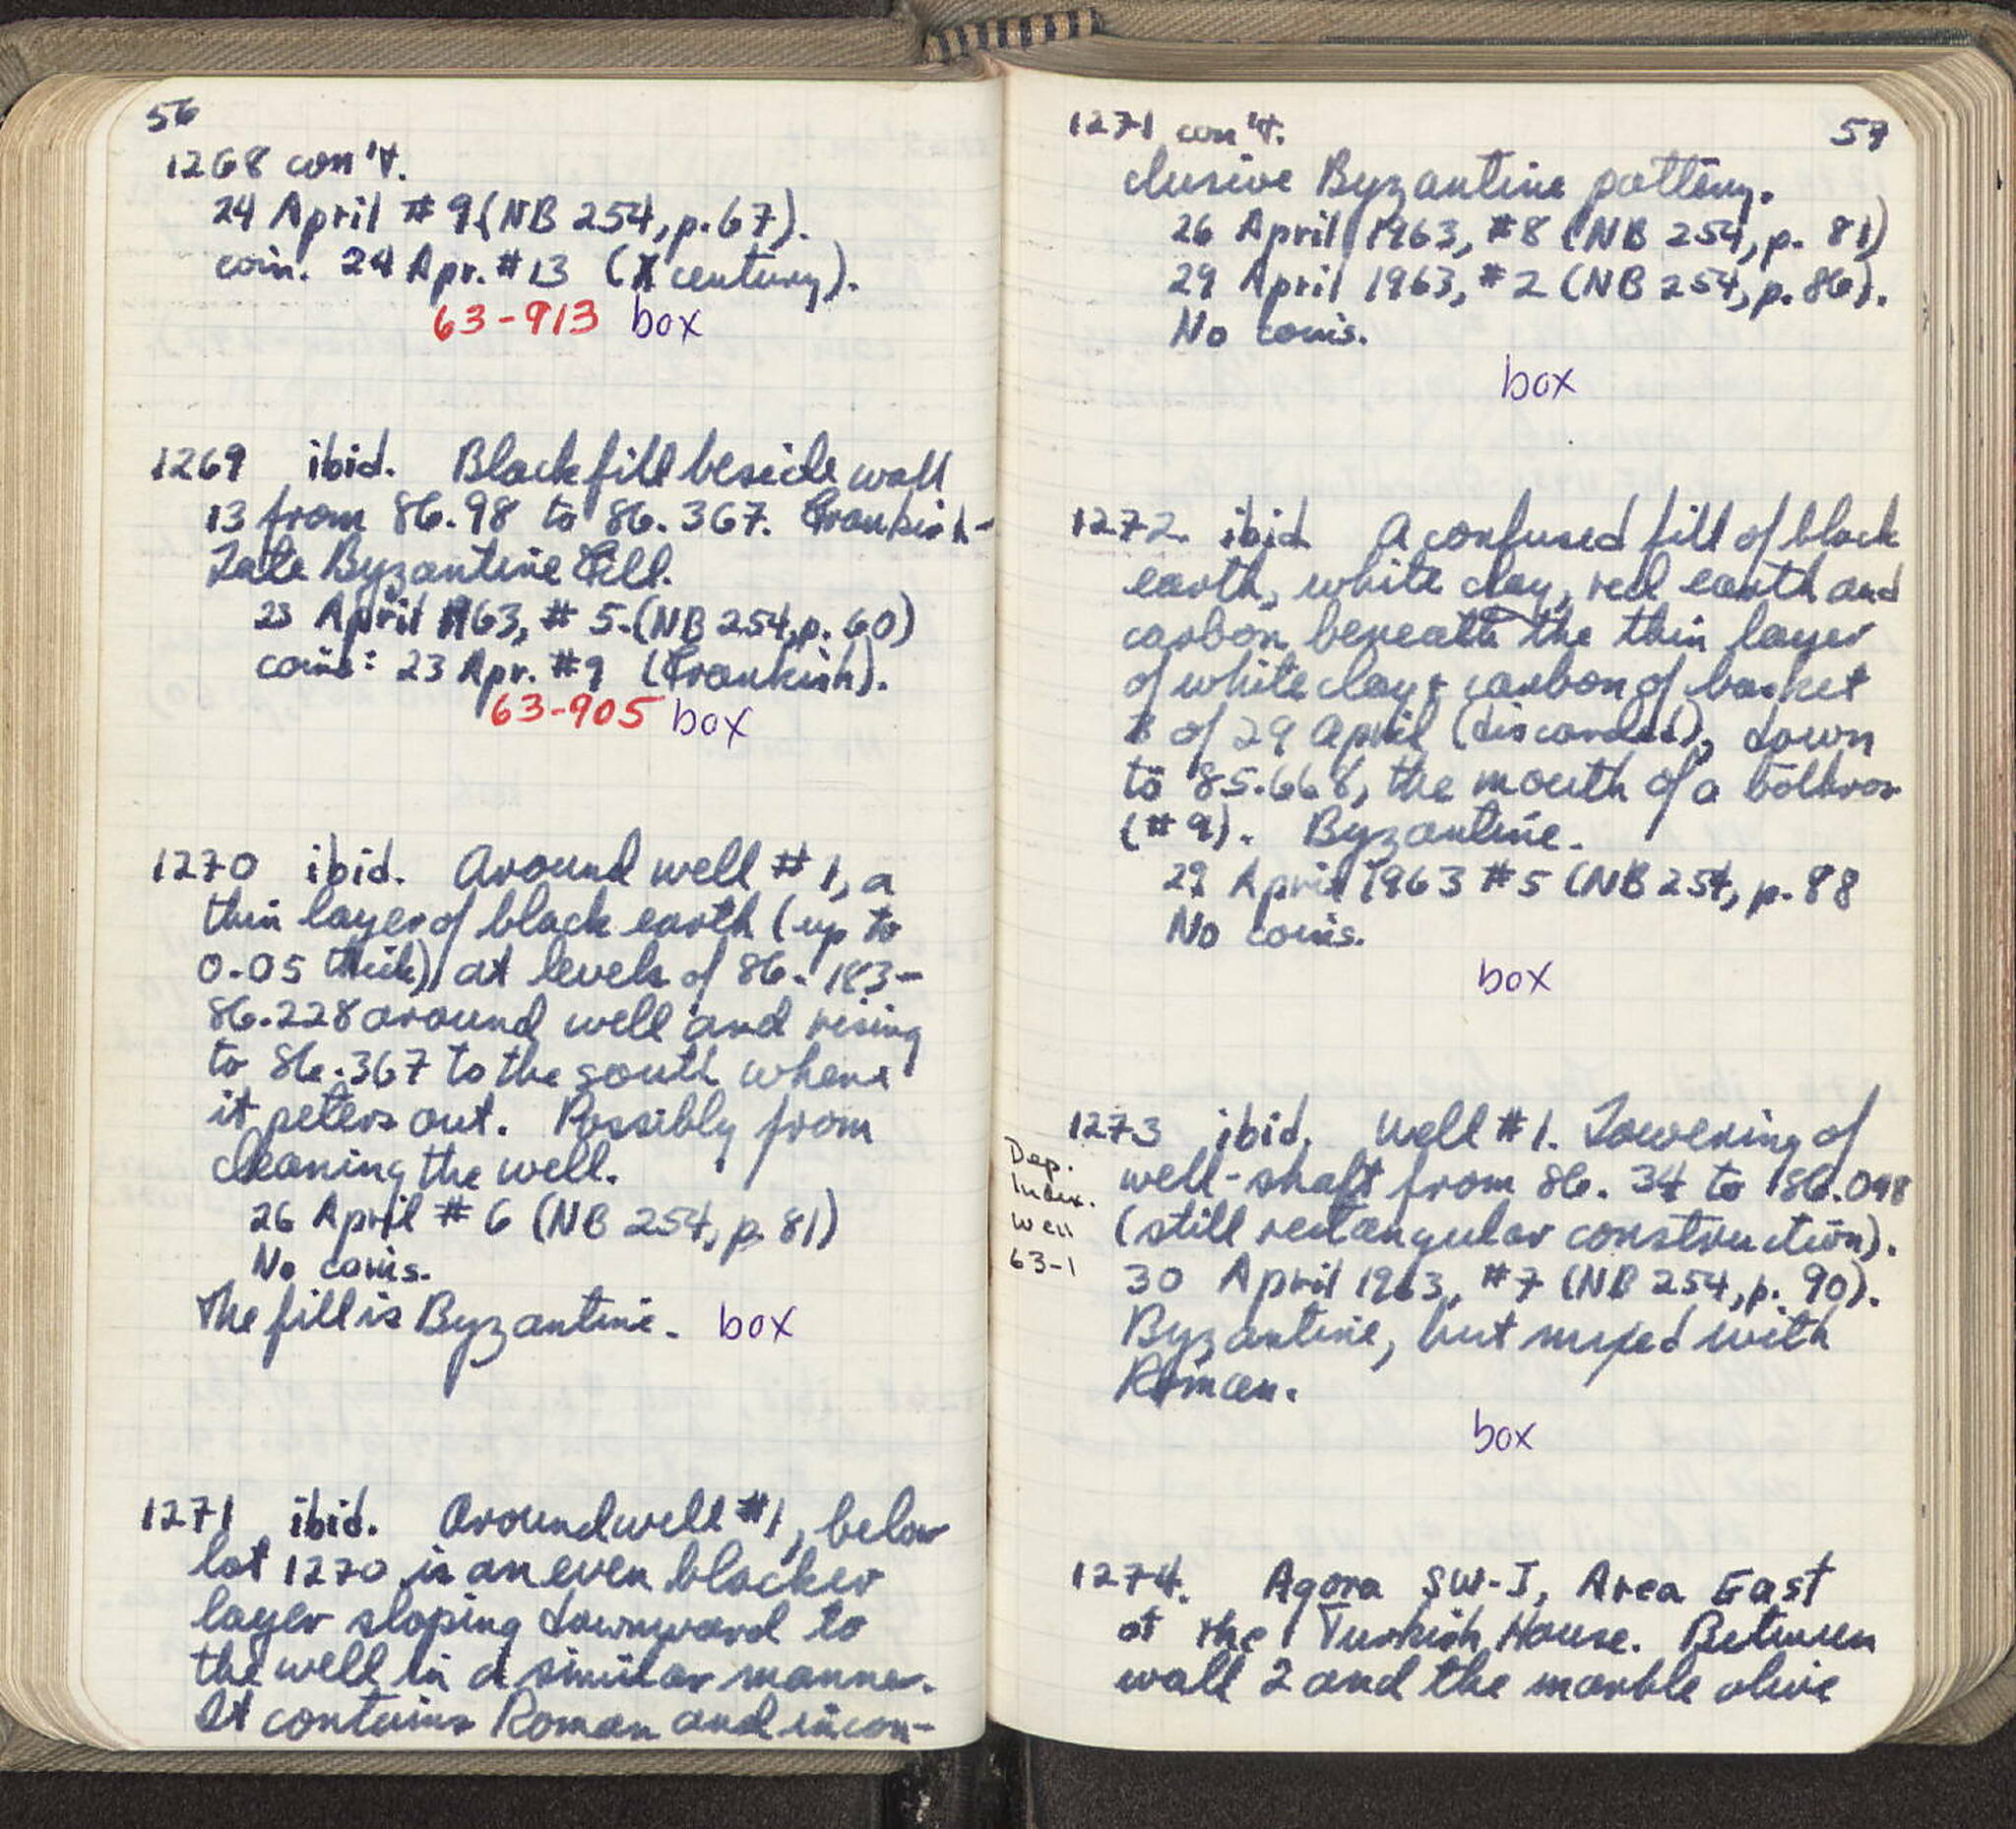 56
1268 con't.
24 April #9 (NB 254, p. 67).
coin. 24 Apr. #13 (X century).
63-913 box
1269 ibid. Black fill beside wall
13 from 86.98 to 86.367. Frankish-
Late Byzantine fill.
23 April 1963, #5. (NB 254, p. 60)
coins: 23 Apr. #9 (Frankish).
63-905 box
1270 ibid. Around well #1, a
thin layer of black earth (up to
0.05 thick) at levels of 86.183-
86.228 around well and rising
to 86.367 to the south where
it peters out. Possibly from
cleaning the well.
26 April #6 (NB 254, p. 81)
No coins.
The fill is Byzantine. box
1271 ibid. Around well #1, below
lot 1270 is an even blacker
layer sloping downward to
the well in a similar manner.
It contains Roman and incon-
57
1271 con't.
clusive Byzantine pottery.
26 April 1963, #8 (NB 254, p. 81)
29 April 1963, #2 (NB 254, p. 86).
No coins.
box
1272. ibid. A confused fill of black
earth, white clay, red earth and
carbon beneath the thin layer
of white clay + carbon of basket
of 29 April (discarded), down
to 85.668, the mouth of a bothros
(#9). Byzantine.
29 April 1963 #5 (NB 254, p. 88
No coins.
box
1273 ibid. Well #1. Lowering of
well-shaft from 86.34 to 86.098
(still rectangular construction).
30 April 1963, #7 (NB 254, p. 90).
Byzantine, but mixed with
Roman.
box
Dep.
Index.
Well
63-1
1274. Agora SW-I, Area East
of the Turkish House. Between
wall 2 and the marble olive